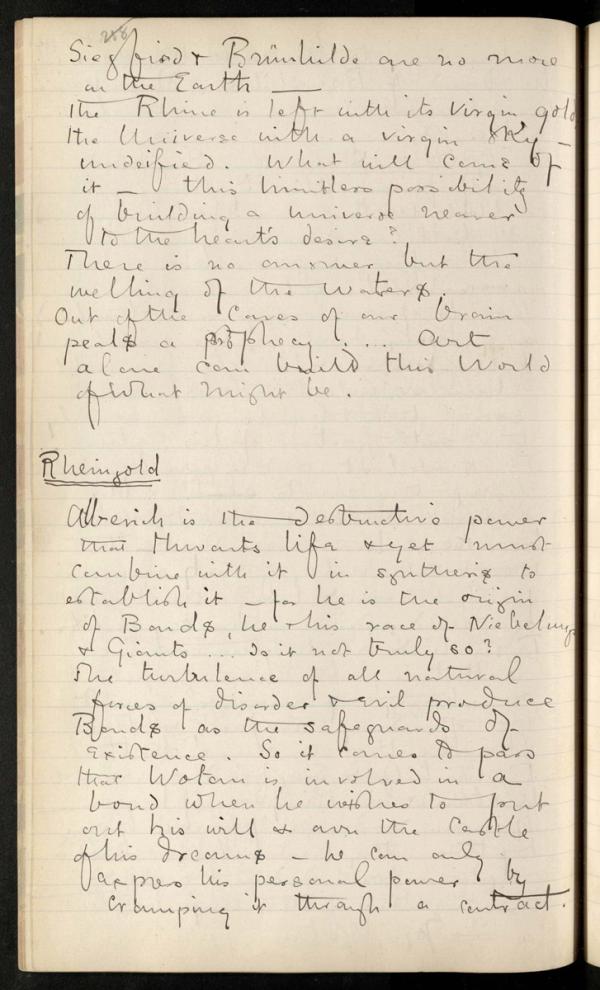 Siegfried & Brünhilde are no more
on the Earth —
The Rhine is left with its virgin gold
the Universe with a virgin sky —
undeified. What will come of
it — this limitless possibility
of building a universe nearer
to the heart's desire?
There is no answer but the
welling of the waters.
Out of the Caves of our brain
peals a prophecy .... Art
alone can build this World
of What might be.
Rheingold
Alberich is the destructive power
that thwarts life & yet must
combine with it in synthesis to
establish it — for he is the origin
of Bonds, he & his race of Niebelungs
& Giants ... Is it not truly so?
The turbulence of all natural
forces of disorder & evil produce
Bonds as the safeguards of
Existence. So it comes to pass
that Wotan is involved in a
bond when he wishes to put
out his will & own the Castle
of his dreams — he can only
express his personal power by
cramping it through a contract.